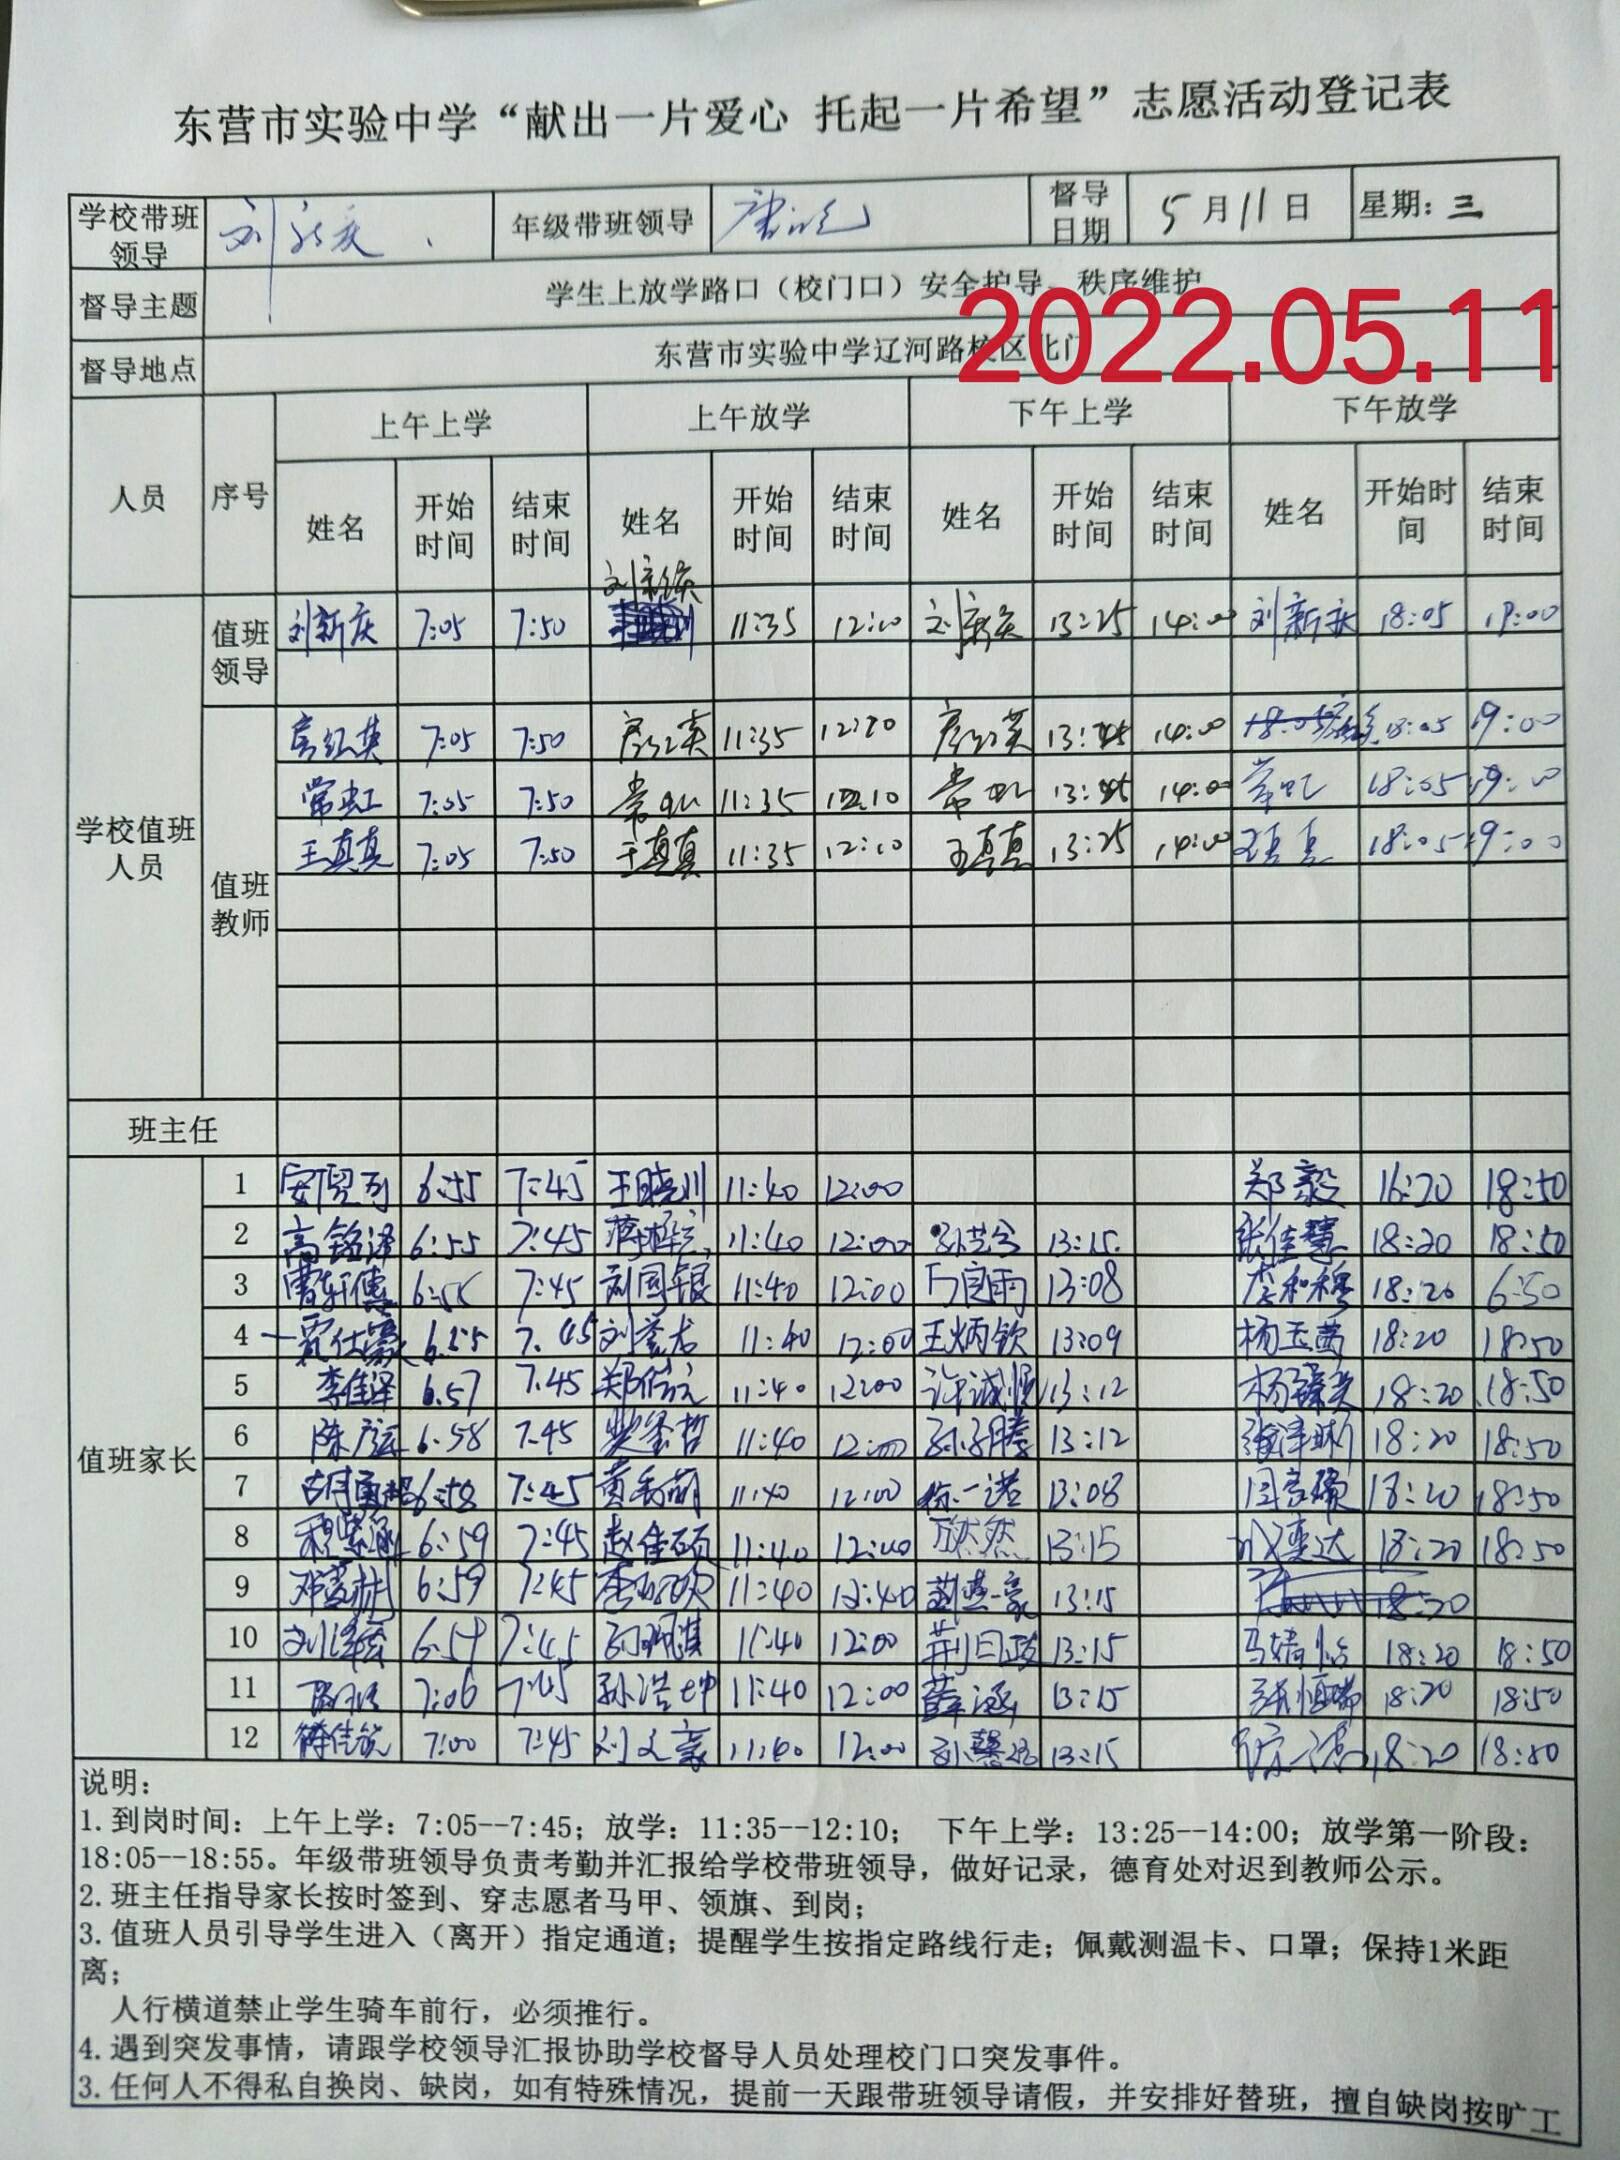 东营市实验中学“献出一片爱心 托起一片希望”志愿活动登记表
学校带班领导 刘新庆 年级带班领导 督导日期 5月11日 星期：三
督导主题 学生上放学路口（校门口）安全护导、秩序维护
督导地点 东营市实验中学辽河路校区北门
2022.05.11
人员 序号 上午上学 上午放学 下午上学 下午放学
姓名 开始时间 结束时间 姓名 开始时间 结束时间 姓名 开始时间 结束时间 姓名 开始时间 结束时间
刘新庆
学校值班人员 值班领导 刘新庆 7:05 7:50 11:35 12:10 刘新庆 13:25 14:00 刘新庆 18:05 19:00
值班教师 7:05 7:50 11:35 13:25 14:00 18:05 19:00
常虹 7:05 7:50 常虹 11:35 12:10 常虹 13:25 14:00 常虹 18:05 19:00
王真真 7:05 7:50 王真真 11:35 12:10 王真真 13:25 14:00 王真真 18:05 19:00
班主任
值班家长
1 6:55 7:45 王晓川 11:40 12:00 郑毅 16:20 18:50
2 高铭泽 6:55 7:45 11:40 12:00 13:15 张佳慧 18:20 18:50
3 曹轩博 6:55 7:45 刘国银 11:40 12:00 13:08 李和穆 18:20 6:50
4 6:55 7.45 刘彦杰 11:40 12:00 王炳钦 13:09 杨玉茜 18:20 18:50
5 李佳泽 6.57 7.45 11:40 12:00 许诚恒 13:12 18:20 18:50
6 6.58 7.45 11:40 12:00 孙子腾 13:12 18:20 18:50
7 6:58 7:45 黄秀萌 11:40 12:00 徐一诺 13:08 18:20 18:50
8 6:59 7:45 赵佳硕 11:40 12:00 13:15 18:20 18:50
9 6:59 7:45 11:40 12:40 13:15 18:20
10 6:59 7:45 11:40 12:00 13:15 18:20 18:50
11 7:06 7:45 孙浩坤 11:40 12:00 薛涵 13:15 18:20 18:50
12 7:00 7:45 刘文豪 11:40 12:00 13:15 18:20 18:50
说明：
1.到岗时间：上午上学：7:05--7:45；放学：11:35--12:10； 下午上学：13:25--14:00；放学第一阶段：
18:05--18:55。年级带班领导负责考勤并汇报给学校带班领导，做好记录，德育处对迟到教师公示。
2.班主任指导家长按时签到、穿志愿者马甲、领旗、到岗；
3.值班人员引导学生进入（离开）指定通道；提醒学生按指定路线行走；佩戴测温卡、口罩；保持1米距
离；
人行横道禁止学生骑车前行，必须推行。
4.遇到突发事情，请跟学校领导汇报协助学校督导人员处理校门口突发事件。
3.任何人不得私自换岗、缺岗，如有特殊情况，提前一天跟带班领导请假，并安排好替班，擅自缺岗按旷工